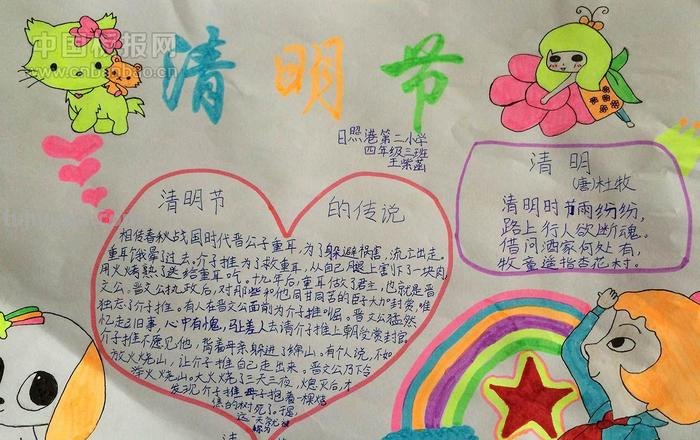 中国板报网
www.cnbanbao.cn
清明节
日照港第二小学
四年级三班
王紫菡
清明节的传说
相传春秋战国时代晋公子重耳,为了躲避祸害,流亡出走。
重耳饿晕了过去。介子推为了救重耳,从自己腿上割下了一块肉
用火烤熟了送给重耳吃。十九年后,重耳做了君主,也就是晋
文公。晋文公执政后,对那些和他同甘共苦的臣子大加封赏,唯
独忘了介子推。有人在晋文公面前为介子推叫屈。晋文公猛然
忆起旧事,心中有愧,马上差人去请介子推上朝受赏封官。
介子推不愿见他,背着母亲躲进了绵山。有个人说,不如
放火烧山,让介子推自己走出来。晋文公乃下令
举火烧山。大火烧了三天三夜,熄灭后,才
发现介子推母子抱着一棵烧
焦的树死了。
这一天
清明
(唐)杜牧
清明时节雨纷纷,
路上行人欲断魂。
借问酒家何处有,
牧童遥指杏花村。